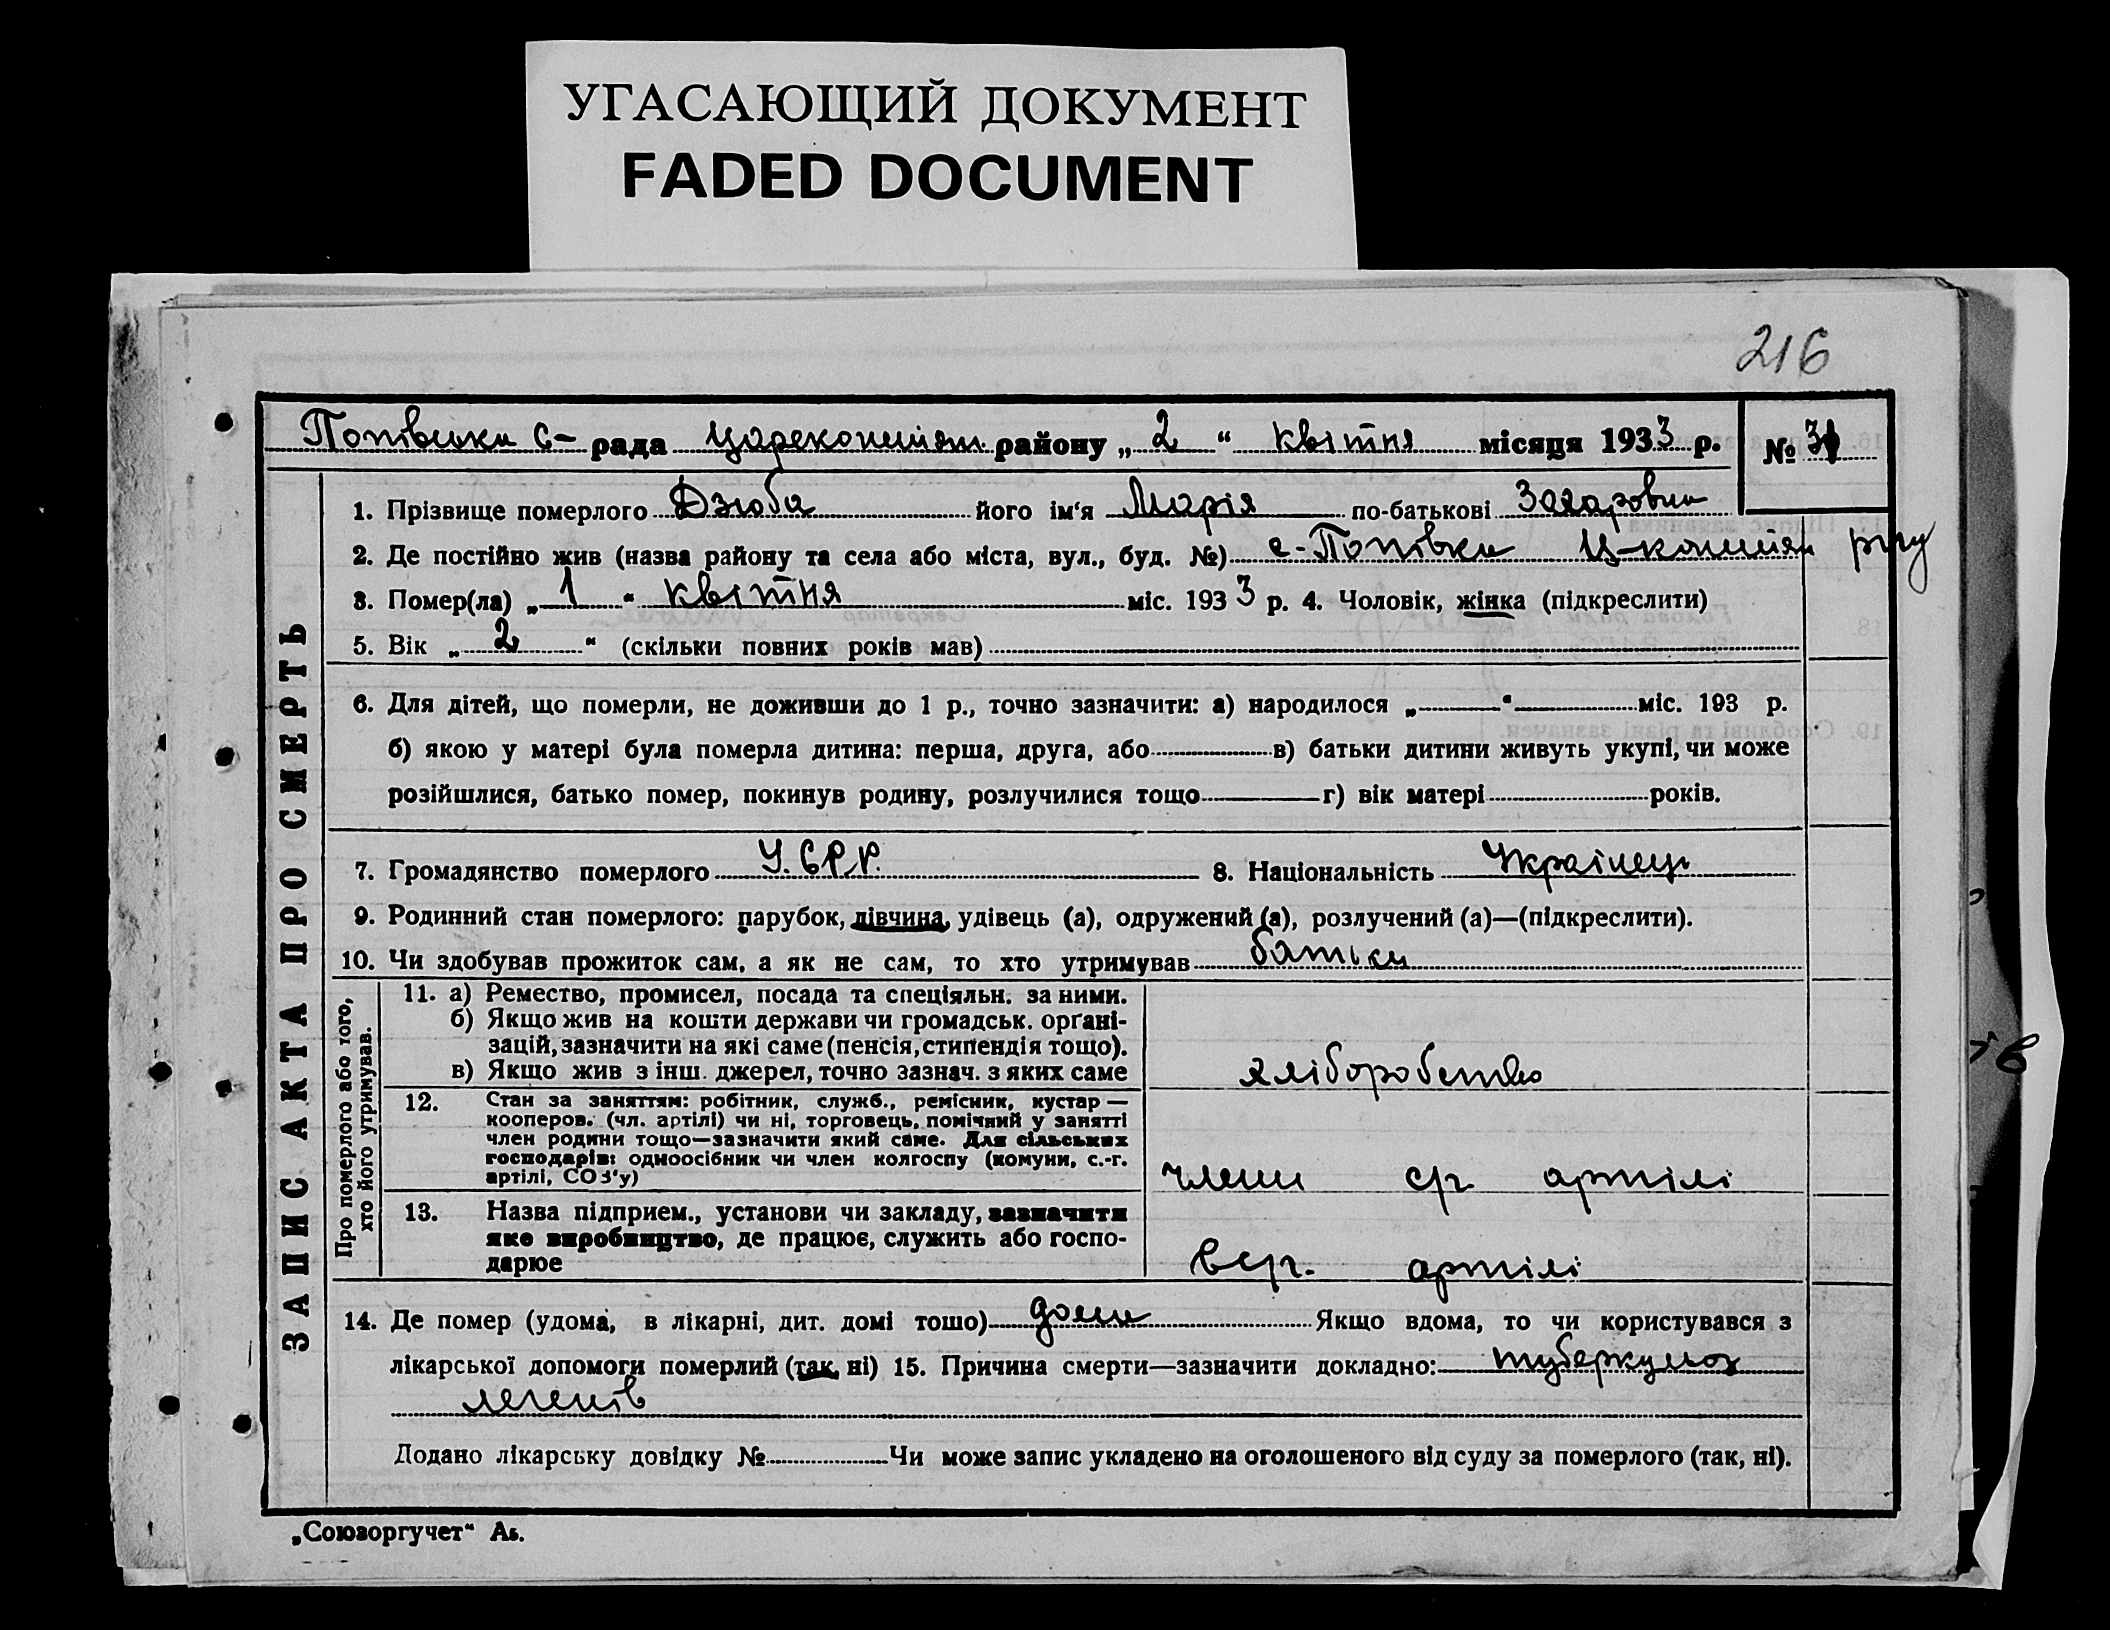 УГАСАЮЩИЙ ДОКУМЕНТ
FADED DOCUMENT
216
Попівська С- рада Царекониган. району „2“ квітня місяця 1933 р.
№ 31
ЗАПИС АКТА ПРО СМЕРТЬ
1. Прізвище померлого Дзюба його ім'я Марія по-батькові Захаровна
2. Де постійно жив (назва району та села або міста, вул., буд. №) с-Попівки
3. Помер(ла) „1“ квітня міс. 1933 р. 4. Чоловік, жінка (підкреслити)
5. Вік „2“ (скільки повних років мав)
6. Для дітей, що померли, не доживши до 1 р., точно зазначити: а) народилося „ “ міс. 193 р.
б) якою у матері була померла дитина: перша, друга, або в) батьки дитини живуть укупі, чи може
розійшлися, батько помер, покинув родину, розлучилися тощо г) вік матері років.
7. Громадянство померлого У.С.Р.Р. 8. Національність Українець
9. Родинний стан померлого: парубок, дівчина, удівець (а), одружений (а), розлучений (а)—(підкреслити).
10. Чи здобував прожиток сам, а як не сам, то хто утримував батьки
Про померлого або того,
хто його утримував.
11. а) Ремество, промисел, посада та спеціяльн. за ними.
б) Якщо жив на кошти держави чи громадськ. орґані-
зацій, зазначити на які саме (пенсія, стипендія тощо).
в) Якщо жив з інш. джерел, точно зазнач. з яких саме
хліборобство
12. Стан за заняттям: робітник, служб., ремісник, кустар—
кооперов. (чл. артілі) чи ні, торговець, помічний у занятті
член родини тощо—зазначити який саме. Для сільських
господарів: одноосібник чи член колгоспу (комуни, с.-г.
артілі, СОЗ'у)
член с/г артілі
13. Назва підприєм., установи чи закладу, зазначити
яке виробництво, де працює, служить або госпо-
дарює
артілі
14. Де помер (удома, в лікарні, дит. домі тошо) дома Якщо вдома, то чи користувався з
лікарської допомоги померлий (так, ні) 15. Причина смерти—зазначити докладно: туберкульоз
легенів
Додано лікарську довідку № Чи може запис укладено на оголошеного від суду за померлого (так, ні).
„Союзоргучет“ Аб.